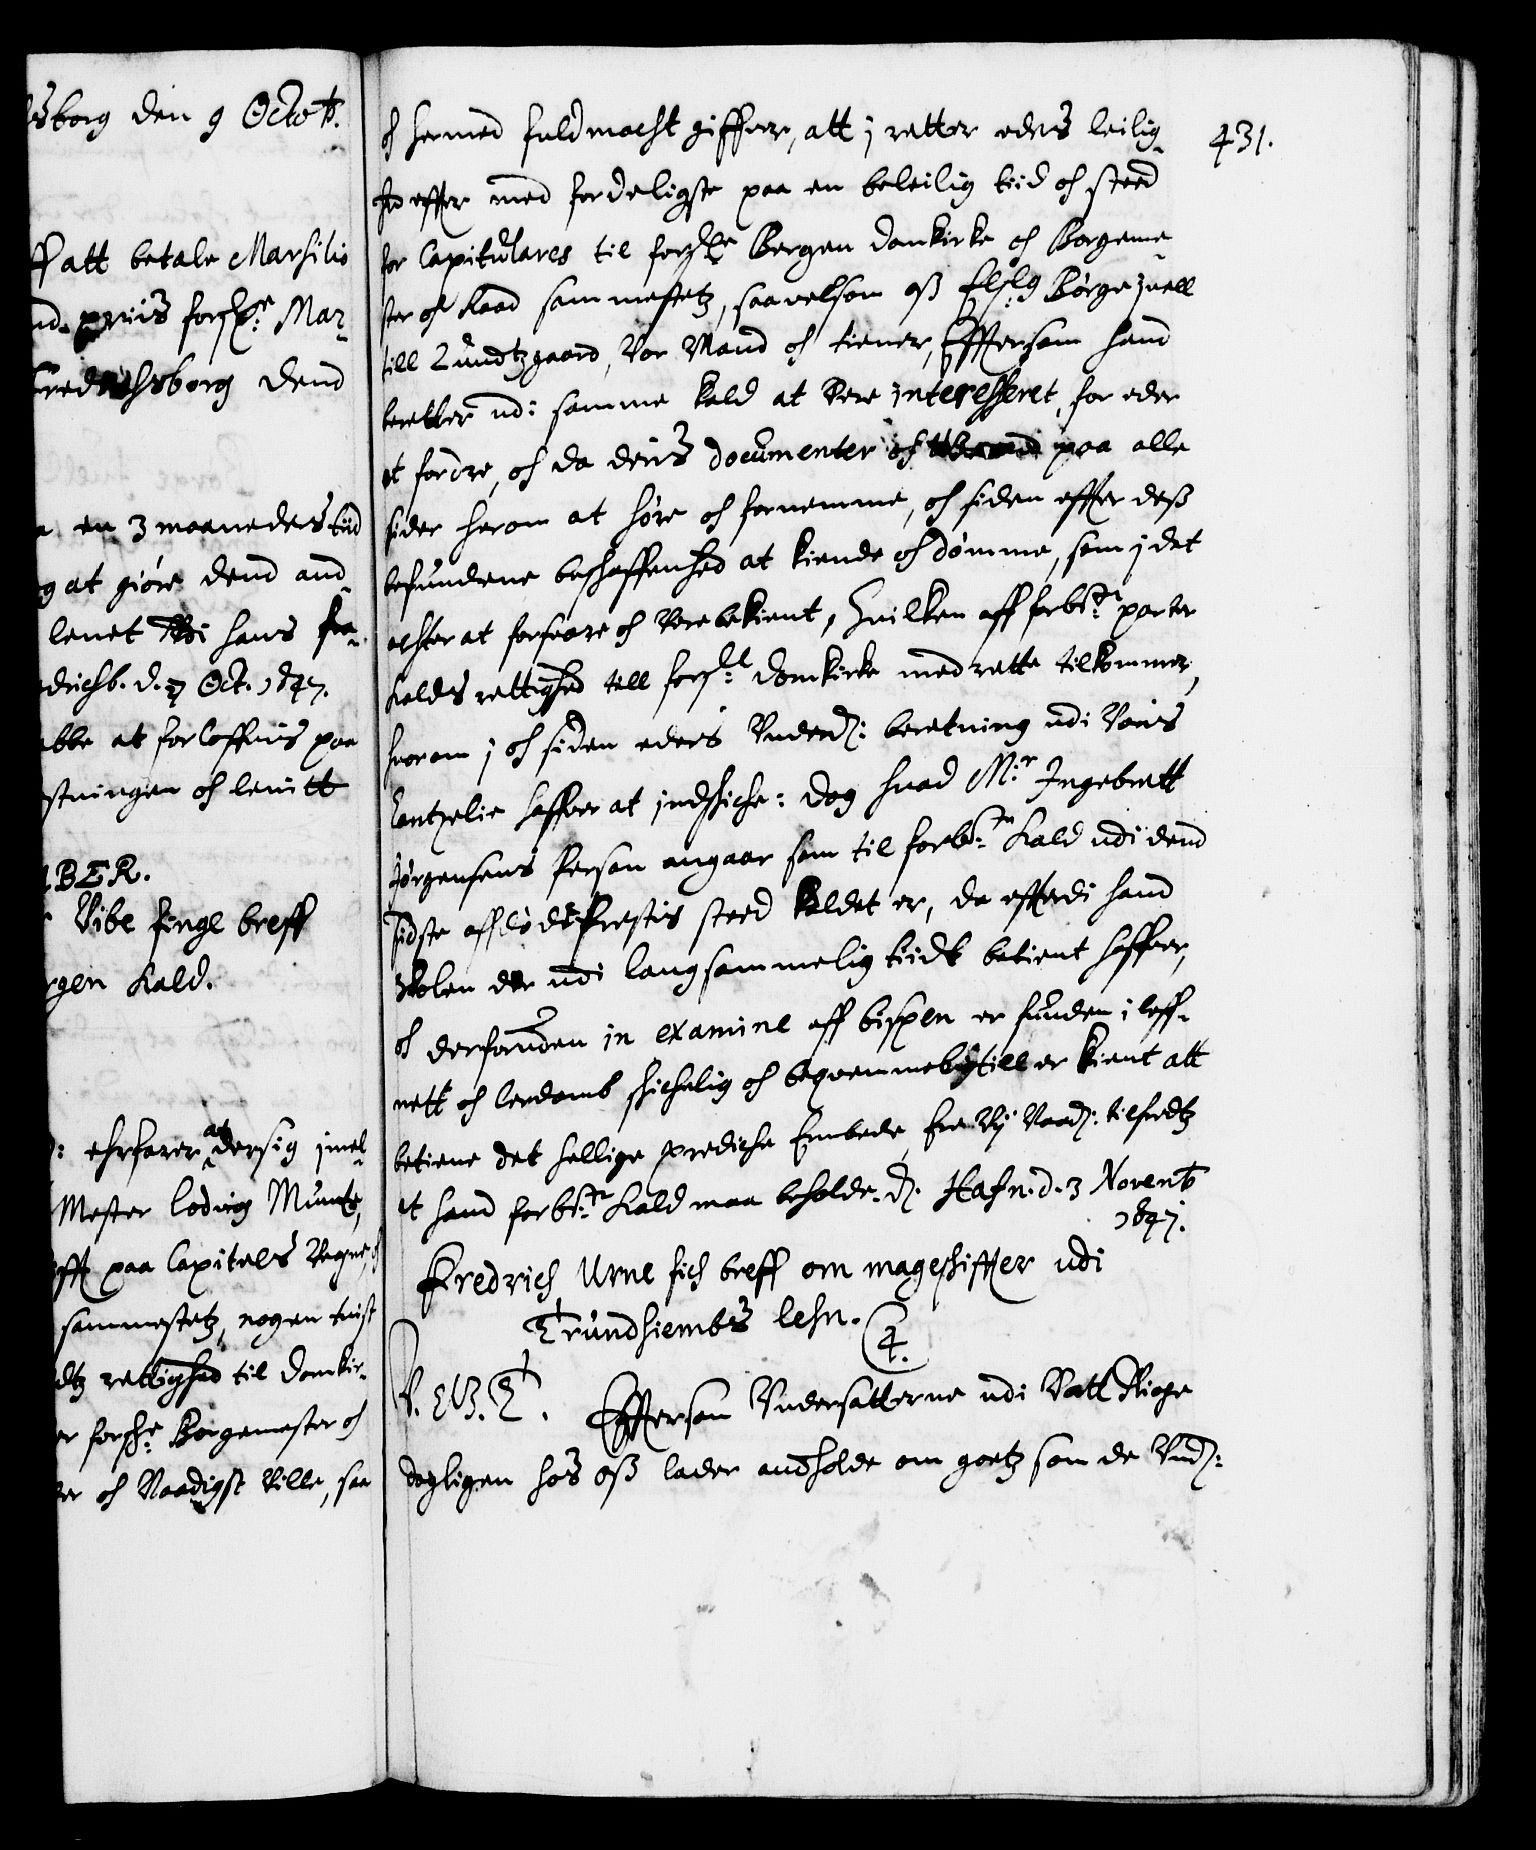 sborg den 9 Octob.
ff att betale Marsilio
Mar¬
Fredrichsborg dend
en 3 maaneders tiid
g at giøre dend and¬
lenet hans fra¬
drichsb. d. 7 Oct. 1647.
ebbe at forloffuis paa
stningen oc leuitt
BER.
Vibe finge breff
rgen Kald.
: ehrfarer at der sig imel¬
Mester Lodvig Munte,
paa Capitels Vegne,
sammestetz, nogen tuist
dtz rettighed til Domkir¬
er forsch: Borgemester oc
er oc Naadigst Ville, saa
431.
oc hermed fuldmacht giffuer, att j retter eders leilig¬
hed effter med forderligste paa en beleilig tiid oc steed
for Capitulares til forschr: Bergen domkirke oc Borgeme¬
ster oc Raad sammestetz, saauelsom oß Elsl: Børge Juell
till Lundtzgaard, Vor Mand oc tiener, Efftersom hand
beretter udi samme Kald at Vere interesseret, for eder
at fordre, oc da deris documenter oc paa alle
sider herom at høre oc fornemme, oc siden effter deß
befundene beskaffenhed at kiende oc dømme, som j det
achter at forsuare oc Vere bekient, Huilken aff forbte: parter
Kalds rettighed till forschr: domkirke med rette tilkommer,
huorom j oc siden eders Underd: beretning udi Voris
Cantzelie haffuer at indskicke: dog huad Mr: Ingebrett
Jørgensens Person angaar som til forbte: Kald udi dend
sidste affdøde Prestis steed Kaldet er, da efterdi hand
Skolen der udi langsommelig tiidt betient haffuer,
oc derforuden in examine aff bispen er funden i leff¬
nett oc lerdomb skickelig oc beqvemmelig till er kient att
betiene det hellige prediche Embede, ere Vij Naad: tilfredtz
at hand forbte: Kald maa beholde. D: Hafn. d. 3 Novemb
1647.
Fredrich Urne fich breff om mageskiffter udi
Trundhiembs lehn.
4.
V. G. T. Efftersom Undersatterne udi Vort Rige
dagligen hos oß lader andholde om goetz som de Und: